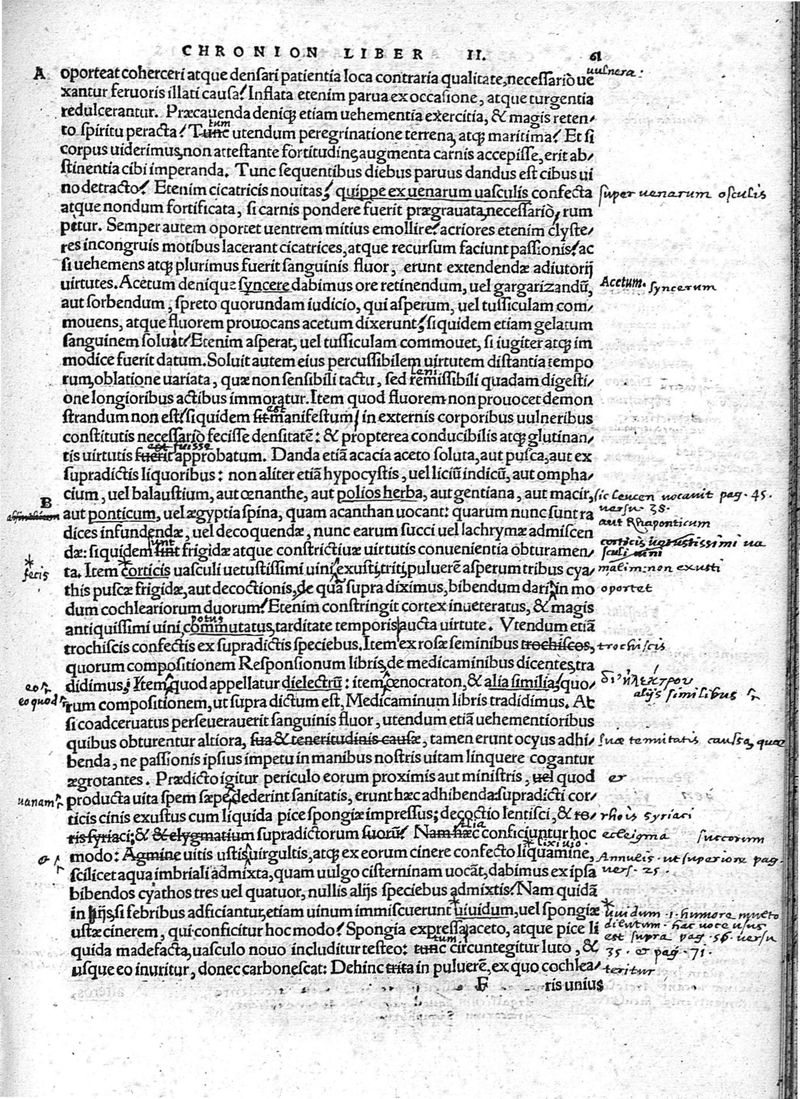 CHRONION LIBER II. 61
A oporteat coherceri atque densari patientia loca contraria qualitate, necessario ue/ uulnera:
xantur feruoris illati causa! Inflata etenim parua ex occasione, atque turgentia
redulcerantur. Præcauenda deniq; etiam uehementia exercitia, & magis reten/
to spiritu peracta! Tunc utendum peregrinatione terrena, atq; maritima! Et si
tum
corpus uiderimus, non attestante fortitudine, augmenta carnis accepisse, erit ab/
stinentia cibi imperanda. Tunc sequentibus diebus paruus dandus est cibus ui
no detracto! Etenim cicatricis nouitas! quippe ex uenarum uasculis confecta super uenarum osculis
atque nondum fortificata, si carnis pondere fuerit prægrauata, necessario, rum
pitur. Semper autem oportet uentrem mitius emollire! acriores etenim clyste/
res incongruis motibus lacerant cicatrices, atque recursum faciunt passionis! ac
si uehemens atq; plurimus fuerit sanguinis fluor, erunt extendendæ adiutorij
uirtutes. Acetum denique syncere dabimus ore retinendum, uel gargarizandū, Acetum. syncerum
aut sorbendum, spreto quorundam iudicio, qui asperum, uel tussiculam com/
mouens, atque fluorem prouocans acetum dixerunt! siquidem etiam gelatum
sanguinem soluat! Etenim asperat, uel tussiculam commouet, si iugiter atq; im
modice fuerit datum. Soluit autem eius percussibilem uirtutem distantia tempo
rum, oblatione uariata, quæ non sensibili tactu, sed remissibili quadam digesti/
one longioribus actibus immoratur. Item quod fluorem non prouocet demon
strandum non est! siquidem sit manifestum! in externis corporibus uulneribus
est
constitutis necessario fecisse densitatē: & propterea conducibilis atq; glutinan/
tis uirtutis fuerit approbatum. Danda etiā acacia aceto soluta, aut pusca, aut ex
est fuisse
supradictis liquoribus: non aliter etiā hypocystis, uel liciū indicū, aut ompha/
cium, uel balaustium, aut œnanthe, aut polios herba, aut gentiana, aut macir, sic leucen uocauit pag. 45. uersu 38.
B aut ponticum, uel ægyptia spina, quam acanthan uocant: quarum nunc sunt ra aut Rhaponticum
dices infundendæ, uel decoquendæ, nunc earum succi uel lachrymæ admiscen
dæ: siquidem sint frigidæ atque constrictiuæ uirtutis conuenientia obturamen/ corticis uetustissimi ua sculi uini
sunt
ta. Item corticis uasculi uetustissimi uini, exusti, triti, puluerē asperum tribus cya/ malim: non exusti
fecis
this puscæ frigidæ, aut decoctionis, de qua supra diximus, bibendum dari, in mo oportet
dum cochleariorum duorum! Etenim constringit cortex inueteratus, & magis
antiquissimi uini commutatus, tarditate temporis aucta uirtute. Vtendum etiā
potus
trochiscis confectis ex supradictis speciebus. Item ex rosæ seminibus trochiscos, trochiscis
quorum compositionem Responsionum libris, de medicaminibus dicentes, tra
didimus! Item quod appellatur dielectrū: item œnocraton, & alia similia! quo/ δι' ἠλεκτρου alijs similibus
eo quod
rum compositionem, ut supra dictum est, Medicaminum libris tradidimus. At
si coadceruatus perseuerauerit sanguinis fluor, utendum etiā uehementioribus
quibus obturentur altiora, sua & teneritudinis causæ, tamen erunt ocyus adhi/ suæ tenuitatis caussa, quæ
benda, ne passionis ipsius impetu in manibus nostris uitam linquere cogantur
ægrotantes. Prædicto igitur periculo eorum proximis aut ministris, uel quod er
producta uita spem sæpe dederint sanitatis, erunt hæc adhibenda: supradicti cor/
uanam
ticis cinis exustus cum liquida pice spongiæ impressus: decoctio lentisci, & ro/ rhois Syriaci
ris syriaci: & & elygmatium supradictorum suorū! Nam hæc conficiuntur hoc ecleigma succorum
Alia
modo: Agmine uitis ustis uirgultis, atq; ex eorum cinere confecto liquamine, Annulis. ut superiore pag. uers. 25.
lixiuio
scilicet aqua imbriali admixta, quam uulgo cisterninam uocāt, dabimus ex ipsa
bibendos cyathos tres uel quatuor, nullis alijs speciebus admixtis! Nam quidā
in ijs, si febribus adficiantur, etiam uinum immiscuerunt uiuidum, uel spongiæ uuidum .i. humore multo
ustæ cinerem, qui conficitur hoc modo! Spongia expressa, aceto, atque pice li dilutum. hac uoce usus
quida madefacta, uasculo nouo includitur testeo: tunc circuntegitur luto, & est supra pag. 56. uersu 35. et pag. 71.
tum
usque eo inuritur, donec carbonescat: Dehinc trita in puluerē, ex quo cochlea/ teritur
F ris unius